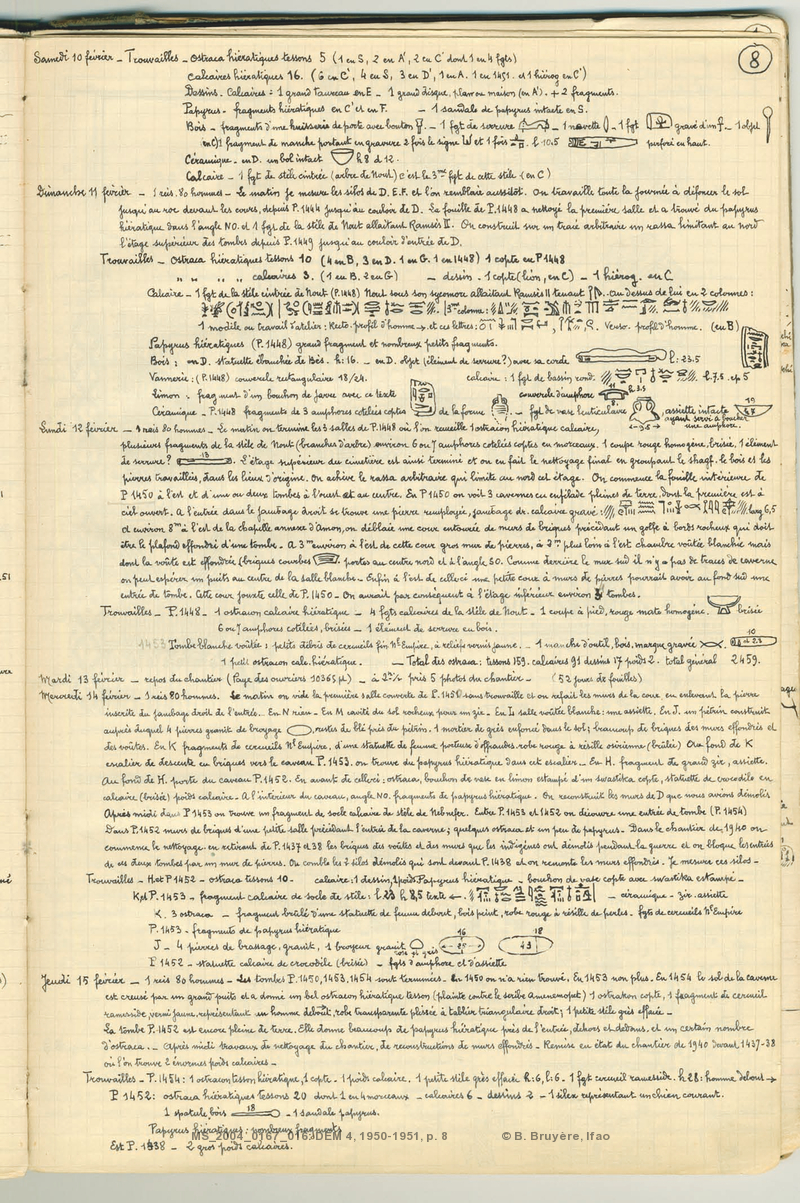 8
Samedi 10 février - Trouvailles - Ostraca hiératiques tessons 5 (1 en S, 2 en A', 2 en C' dont 1 en 4 fgts)
calcaires hiératiques 16. (6 en C', 4 en S, 3 en D', 1 en A. 1 en 1451. et 1 hiérog en C')
Dessins - Calcaires : 1 grand taureau en E - 1 grand disque, plan ou maison (en A'). + 2 fragments.
Papyrus - fragments hiératiques en C' et en F. - 1 sandale de papyrus intacte en S.
Bois - fragments d'une huisserie de porte avec bouton - 1 fgt de serrure - 1 navette - 1 fgt gravé d'un - 1 objet
en C) 1 fragment de manche portant en gravure 2 fois le signe et 1 fois l. 10.5 perforé en haut.
Céramique - en D. un bol intact h 8 d 12.
Calcaire - 1 fgt de stèle cintrée (arbre de Nout) c'est le 3me fgt de cette stèle (en C)
Dimanche 11 février - 1 reis. 80 hommes - Le matin je mesure les silos de D. E. F. et l'on remblaie aussitôt. On travaille toute la journée à défoncer le sol
jusqu'au roc devant les cours, depuis P. 1444 jusqu'au couloir de D. La fouille de P. 1448 a nettoyé la première salle et a trouvé du papyrus
hiératique dans l'angle NO. et 1 fgt de la stèle de Nout allaitant Ramsès II. On construit sur un tracé arbitraire un rassa limitant au nord
l'étage supérieur des tombes depuis P. 1449 jusqu'au couloir d'entrée de D.
Trouvailles - Ostraca hiératiques tessons 10 (4 en B, 3 en D. 1 en G. 1 en 1448) 1 copte en P 1448
" " " " calcaires 3. (1 en B. 2 en G) - dessin - 1 copte (lion, en C) - 1 hiérog. en C
Calcaire - 1 fgt de la stèle cintrée de Nout (P. 1448) Nout sous son sycomore allaitant Ramsès II tenant au dessus de lui en 2 colonnes :
3me colonne :
1 modèle ou travail d'atelier : Recto. profil d'homme et ces lettres : Verso. profil d'homme. (en B)
Papyrus hiératiques (P. 1448) grand fragment et nombreux petits fragments.
Bois : en D. statuette ébauchée de Bès. h : 16. - en D. objet (élément de serrure ?) avec sa corde l : 23.5
Vannerie : (P. 1448) couvercle rectangulaire 18/24. calcaire : 1 fgt de bassin rond. l. 7.8. ep 5
Limon : fragment d'un bouchon de jarre avec ce texte couvercle d'amphore
Céramique - P. 1448 fragments de 3 amphores cotelées coptes de la forme - fgt de vase lenticulaire assiette intacte ayant servi à boucher une amphore.
Lundi 12 février - 1 reis 80 hommes - Le matin on termine les 3 salles de P. 1448 où l'on recueille 1 ostracon hiératique calcaire,
plusieurs fragments de la stèle de Nout (branches d'arbre) environ 6 ou 7 amphores cotelées coptes en morceaux. 1 coupe rouge homogène, brisée. 1 élément
de serrure ? L'étage supérieur du cimetière est ainsi terminé et on en fait le nettoyage final en groupant le shagf. le bois et les
pierres travaillées, dans les lieux d'origine. On achève le rassa arbitraire qui limite au nord cet étage. On commence la fouille intérieure de
P 1450 à l'est et d'une ou deux tombes à l'ouest et au centre. En P 1450 on voit 3 cavernes en enfilade pleines de terre, dont la première est à
ciel ouvert. A l'entrée dans le jambage droit se trouve une pierre remployée, jambage dr. calcaire gravé : larg 6,5
et environ 8m à l'est de la chapelle annexe d'Amon, on déblaie une cour entourée de murs de briques précédant un golfe à bords rocheux qui doit
être le plafond effondré d'une tombe. A 3m environ à l'est de cette cour gros mur de pierres, à 2m plus loin à l'est chambre voûtée blanchie mais
dont la voûte est effondrée (briques courbes portes au centre nord et à l'angle SO. Comme derrière le mur sud il n'y a pas de traces de caverne
on peut espérer un puits au centre de la salle blanche. Enfin à l'est de celle-ci une petite cour à murs de pierres pourrait avoir au fond sud une
entrée de tombe. Cette cour jouxte celle de P. 1450 - On aurait par conséquent à l'étage inférieur environ tombes.
Trouvailles - P. 1448 - 1 ostracon calcaire hiératique - 4 fgts calcaires de la stèle de Nout - 1 coupe à pied, rouge mate homogène. brisée
6 ou 7 amphores cotelées, brisées - 1 élément de serrure en bois.
1453 Tombe blanche voûtée : petits débris de cercueils fin Nel Empire, à reliefs vernis jaune. - 1 manche d'outil, bois, marque gravée
1 petit ostracon calc. hiératique. - Total des ostraca : tessons 159. calcaires 91 dessins 17 poids 2. total général 2459.
Mardi 13 février - repos du chantier (Paye des ouvriers 10365 pt) - pris 5 photos du chantier - (52 jours de fouilles)
Mercredi 14 février - 1 reis 80 hommes. Le matin on vide la première salle couverte de P. 1450 sans trouvaille et on refait les murs de la cour en enlevant la pierre
inscrite du jambage droit de l'entrée. En N rien - En M cavité du sol rocheux pour un zir - En L salle voûtée blanche : une assiette. En J. un pétrin construit
auprès duquel 4 pierres granit de broyage restes de blé près du pétrin. 1 mortier de grès enfoncé dans le sol ; beaucoup de briques des murs effondrés et
des voûtes. En K fragments de cercueils Nl Empire, d'une statuette de femme porteuse d'offrandes, robe rouge à résille osirienne (brûlée) Au fond de K
escalier de descente en briques vers le caveau P. 1453. on trouve du papyrus hiératique dans cet escalier - En H. fragment de grand zir, assiette.
Au fond de H. porte du caveau P. 1452. En avant de celle-ci : ostraca, bouchon de vase en limon estampé d'un swastika copte, statuette de crocodile en
calcaire (brisée) poids calcaire - A l'intérieur du caveau, angle NO. fragments de papyrus hiératique. On reconstruit les murs de D que nous avions démolis
Après midi dans P 1453 on trouve un fragment de socle calcaire de stèle de Nebnefer. Entre P. 1453 et 1452 on découvre une entrée de tombe (P. 1454)
Dans P. 1452 murs de briques d'une petite salle précédant l'entrée de la caverne ; quelques ostraca et un peu de papyrus - Dans le chantier de 1940 on
commence le nettoyage en retirant de P. 1437 et 38 les briques des voûtes et des murs que les indigènes ont démolis pendant la guerre et on bloque les entrées
de ces deux tombes par un mur de pierres. On comble les 2 silos démolis qui sont devant P. 1438 et on remonte les murs effondrés. Je mesure ces silos -
Trouvailles - H et P 1452 - ostraca tessons 10 - calcaire : 1 dessin, 1 poids. Papyrus hiératique - bouchon de vase copte avec swastika estampé -
K et P. 1453 - fragment calcaire de socle de stèle : l. 23 h 8,5 texte - céramique - zir. assiette
K. 3 ostraca - fragment brûlé d'une statuette de femme debout, bois peint, robe rouge à résille de perles. fgts de cercueils Nl Empire
P. 1453 - fragments de papyrus hiératique
J - 4 pierres de brassage, granit, 1 broyeur granit
P 1452 - statuette calcaire de crocodile (brisée) - fgts d'amphore et d'assiette
Jeudi 15 février - 1 reis 80 hommes - Les tombes P. 1450, 1453, 1454 sont terminées - En 1450 on n'a rien trouvé. En 1453 non plus. En 1454 le sol de la caverne
est creusé par un grand puits et a donné un bel ostracon hiératique tesson (plainte contre le scribe Amenemopet) 1 ostrakon copte, 1 fragment de cercueil
ramesside, verni jaune, représentant un homme debout, robe transparente plissée à tablier triangulaire droit ; 1 petite stèle grès effacée -
La tombe P. 1452 est encore pleine de terre. Elle donne beaucoup de papyrus hiératique près de l'entrée, dehors et dedans, et un certain nombre
d'ostraca. - Après midi travaux de nettoyage du chantier, de reconstructions de murs effondrés - Remise en état du chantier de 1940 devant 1437-38
où l'on trouve 2 énormes poids calcaires -
Trouvailles - P. 1454 : 1 ostracon tesson hiératique, 1 copte - 1 poids calcaire, 1 petite stèle grès effacée h : 6, l : 6 - 1 fgt cercueil ramesside. h 28 : homme debout →
P 1452 : ostraca hiératiques tessons 20 dont 1 en 4 morceaux - calcaires 6 - dessins 2 - 1 silex représentant un chien courant.
1 spatule, bois 18 - 1 sandale papyrus.
Papyrus hiératiques : nombreux fragments
Est P. 1438 - 2 gros poids calcaires.
MS_2004_0167_016. DEM 4, 1950-1951, p. 8 © B. Bruyère, Ifao